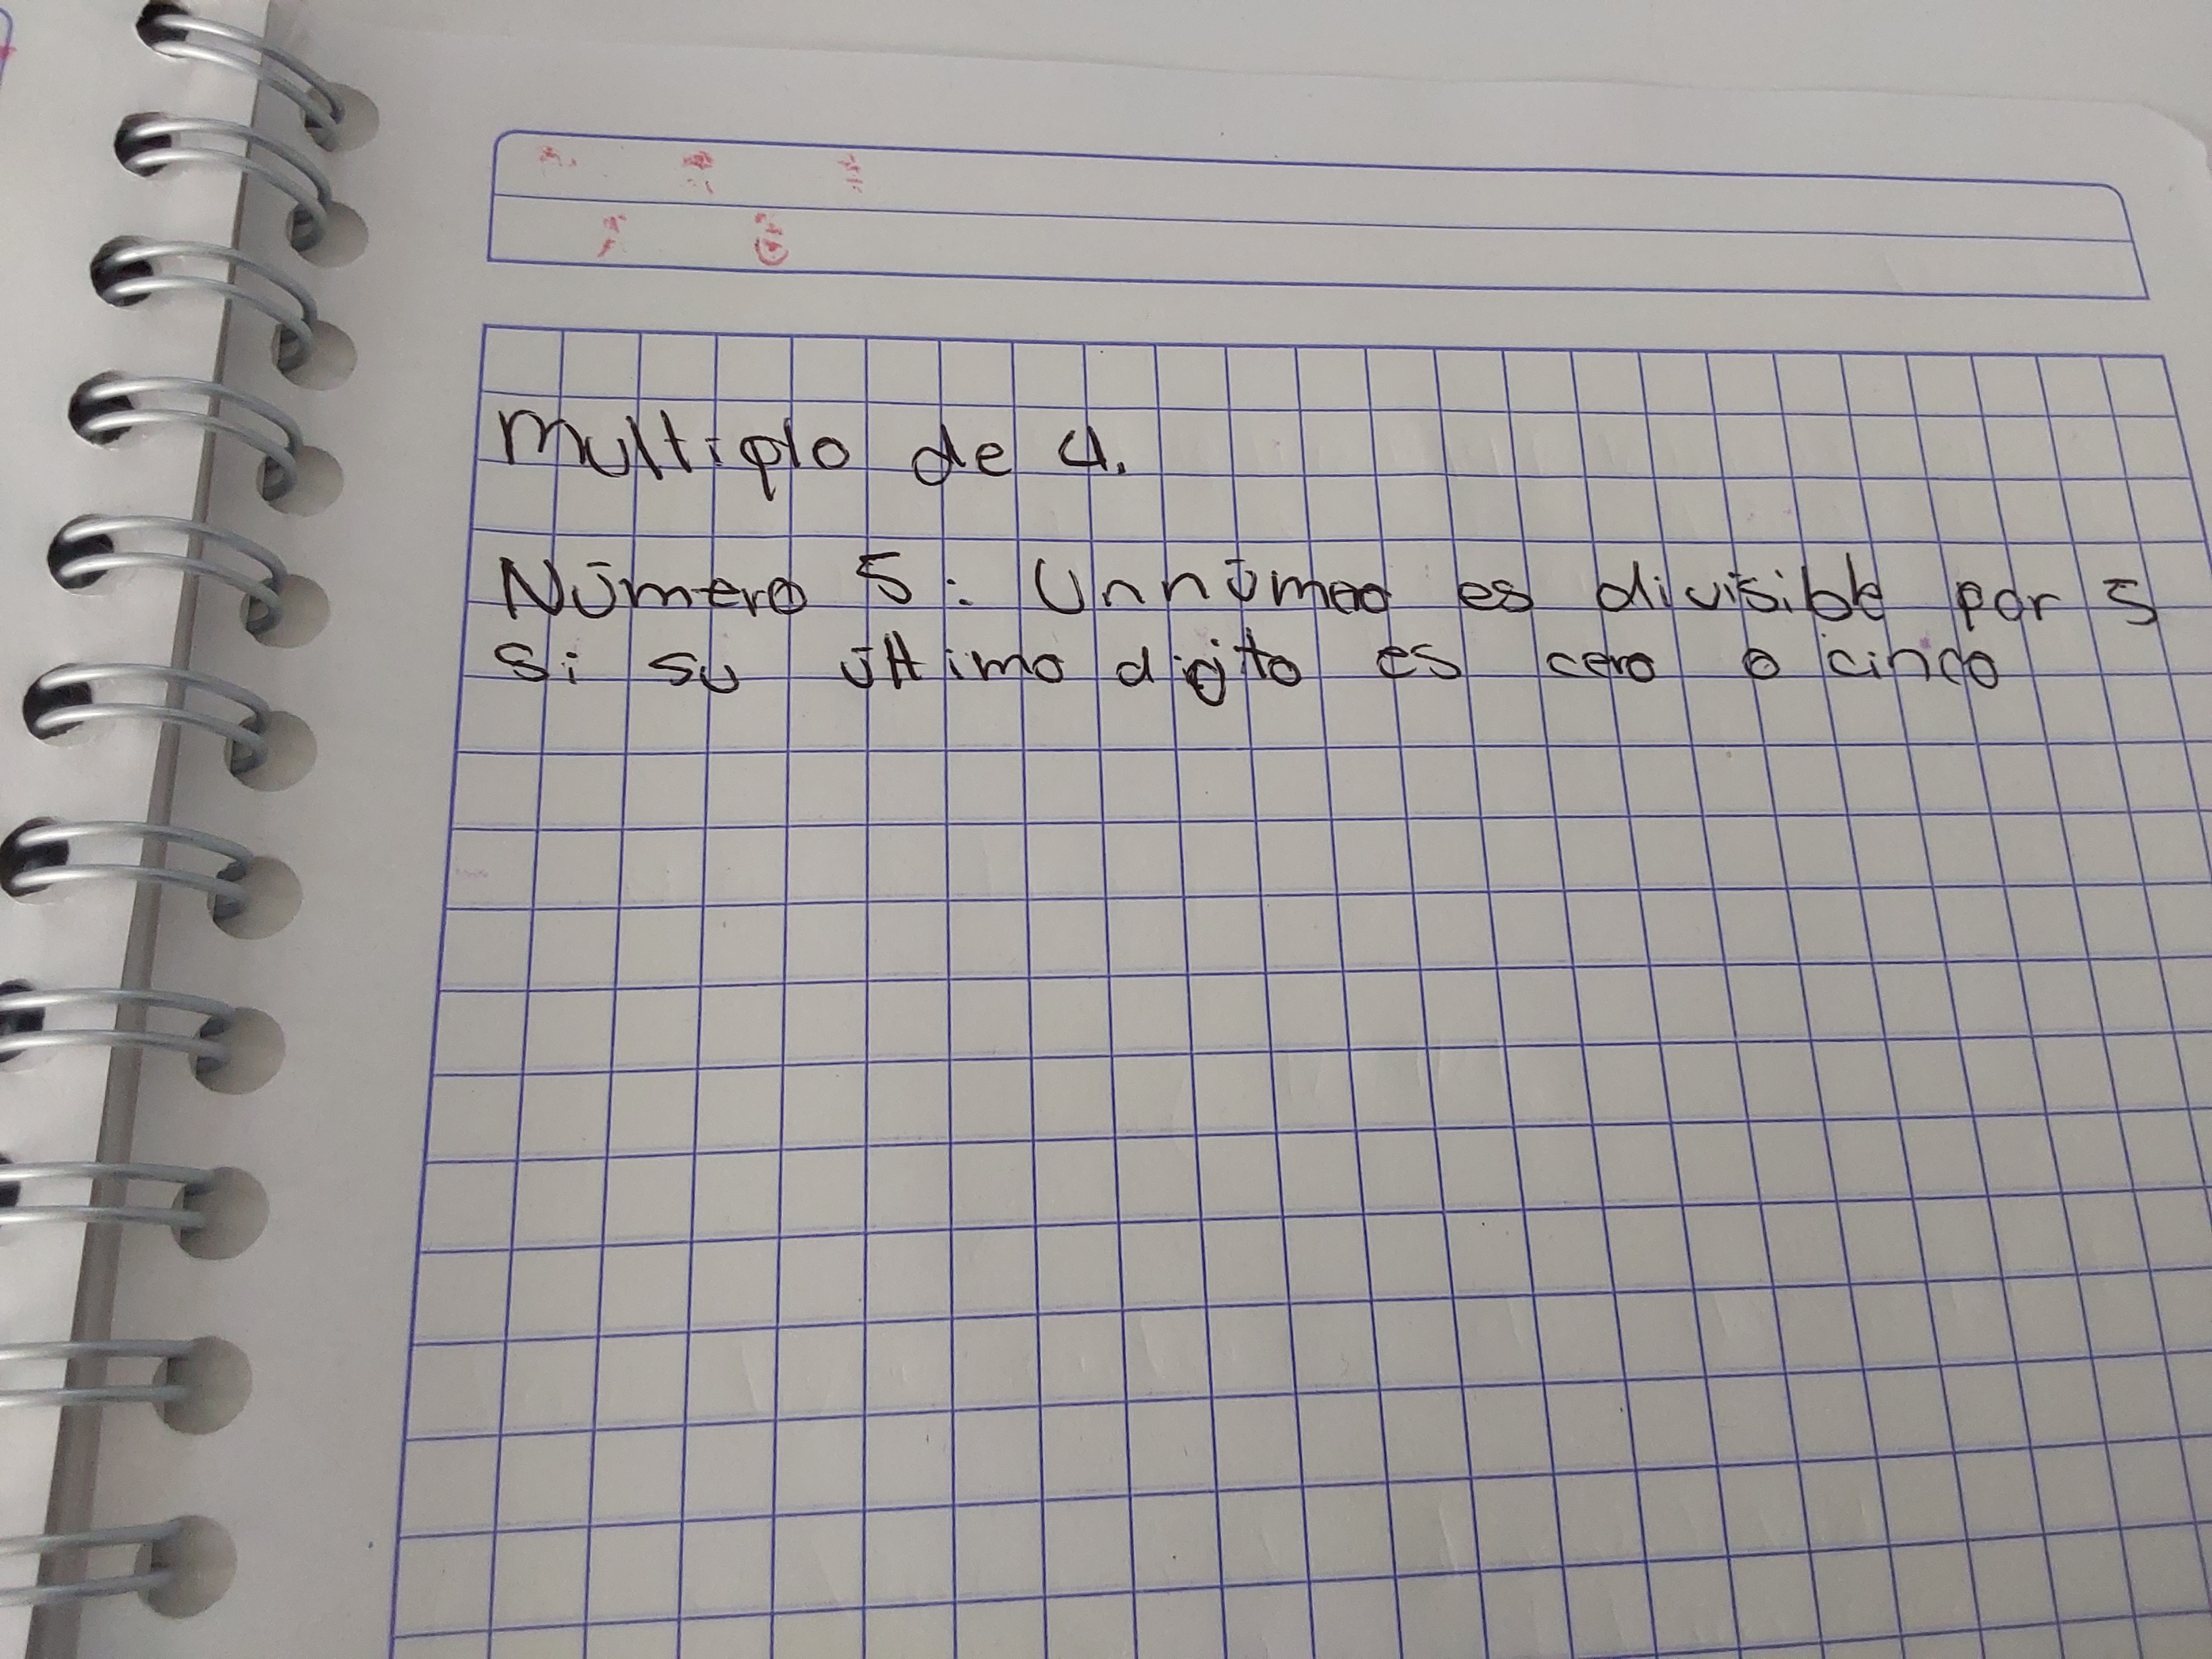 multiplo de 4.
Número 5: Un número es divisible por 5
si su último digito es cero o cinco